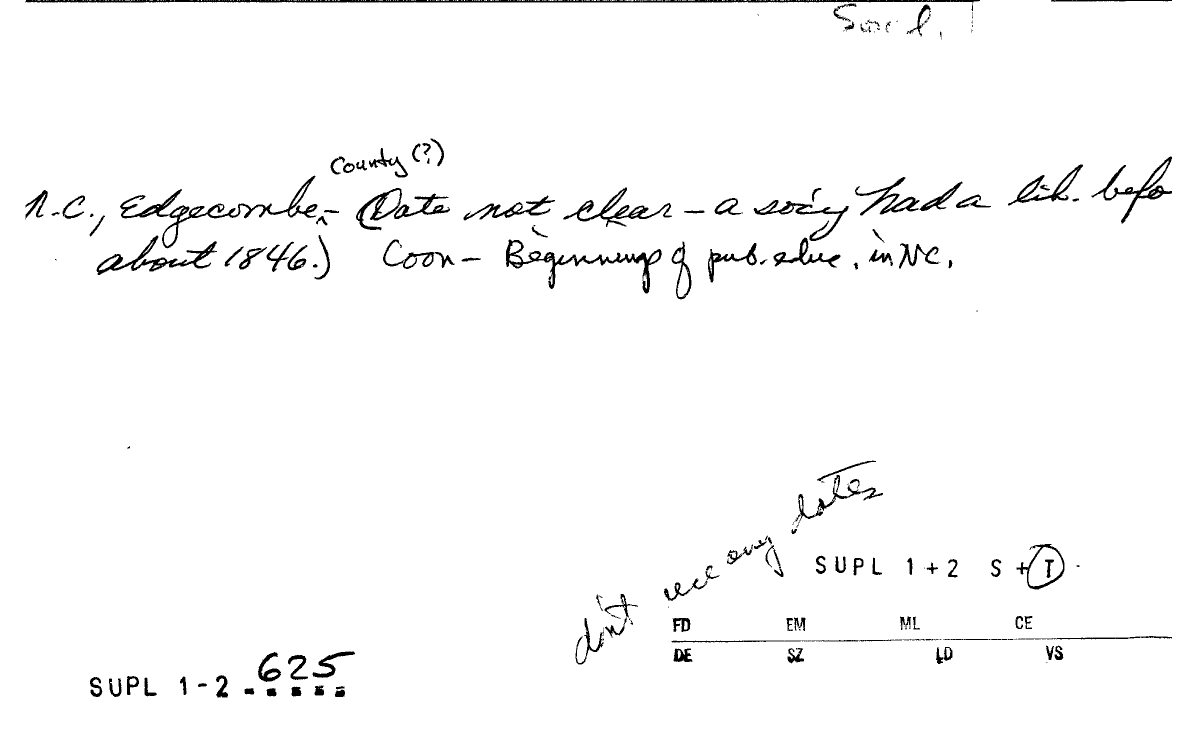 County (?)
N.C., Edgecombe,- (Date not clear - a soc'y had a lib. befo
about 1846.) Coon - Beginnings of pub. educ. in NC.
don't use any dates
SUPL 1+2 S+T
FD EM ML CE
DE SZ LD VS
SUPL 1-2 625